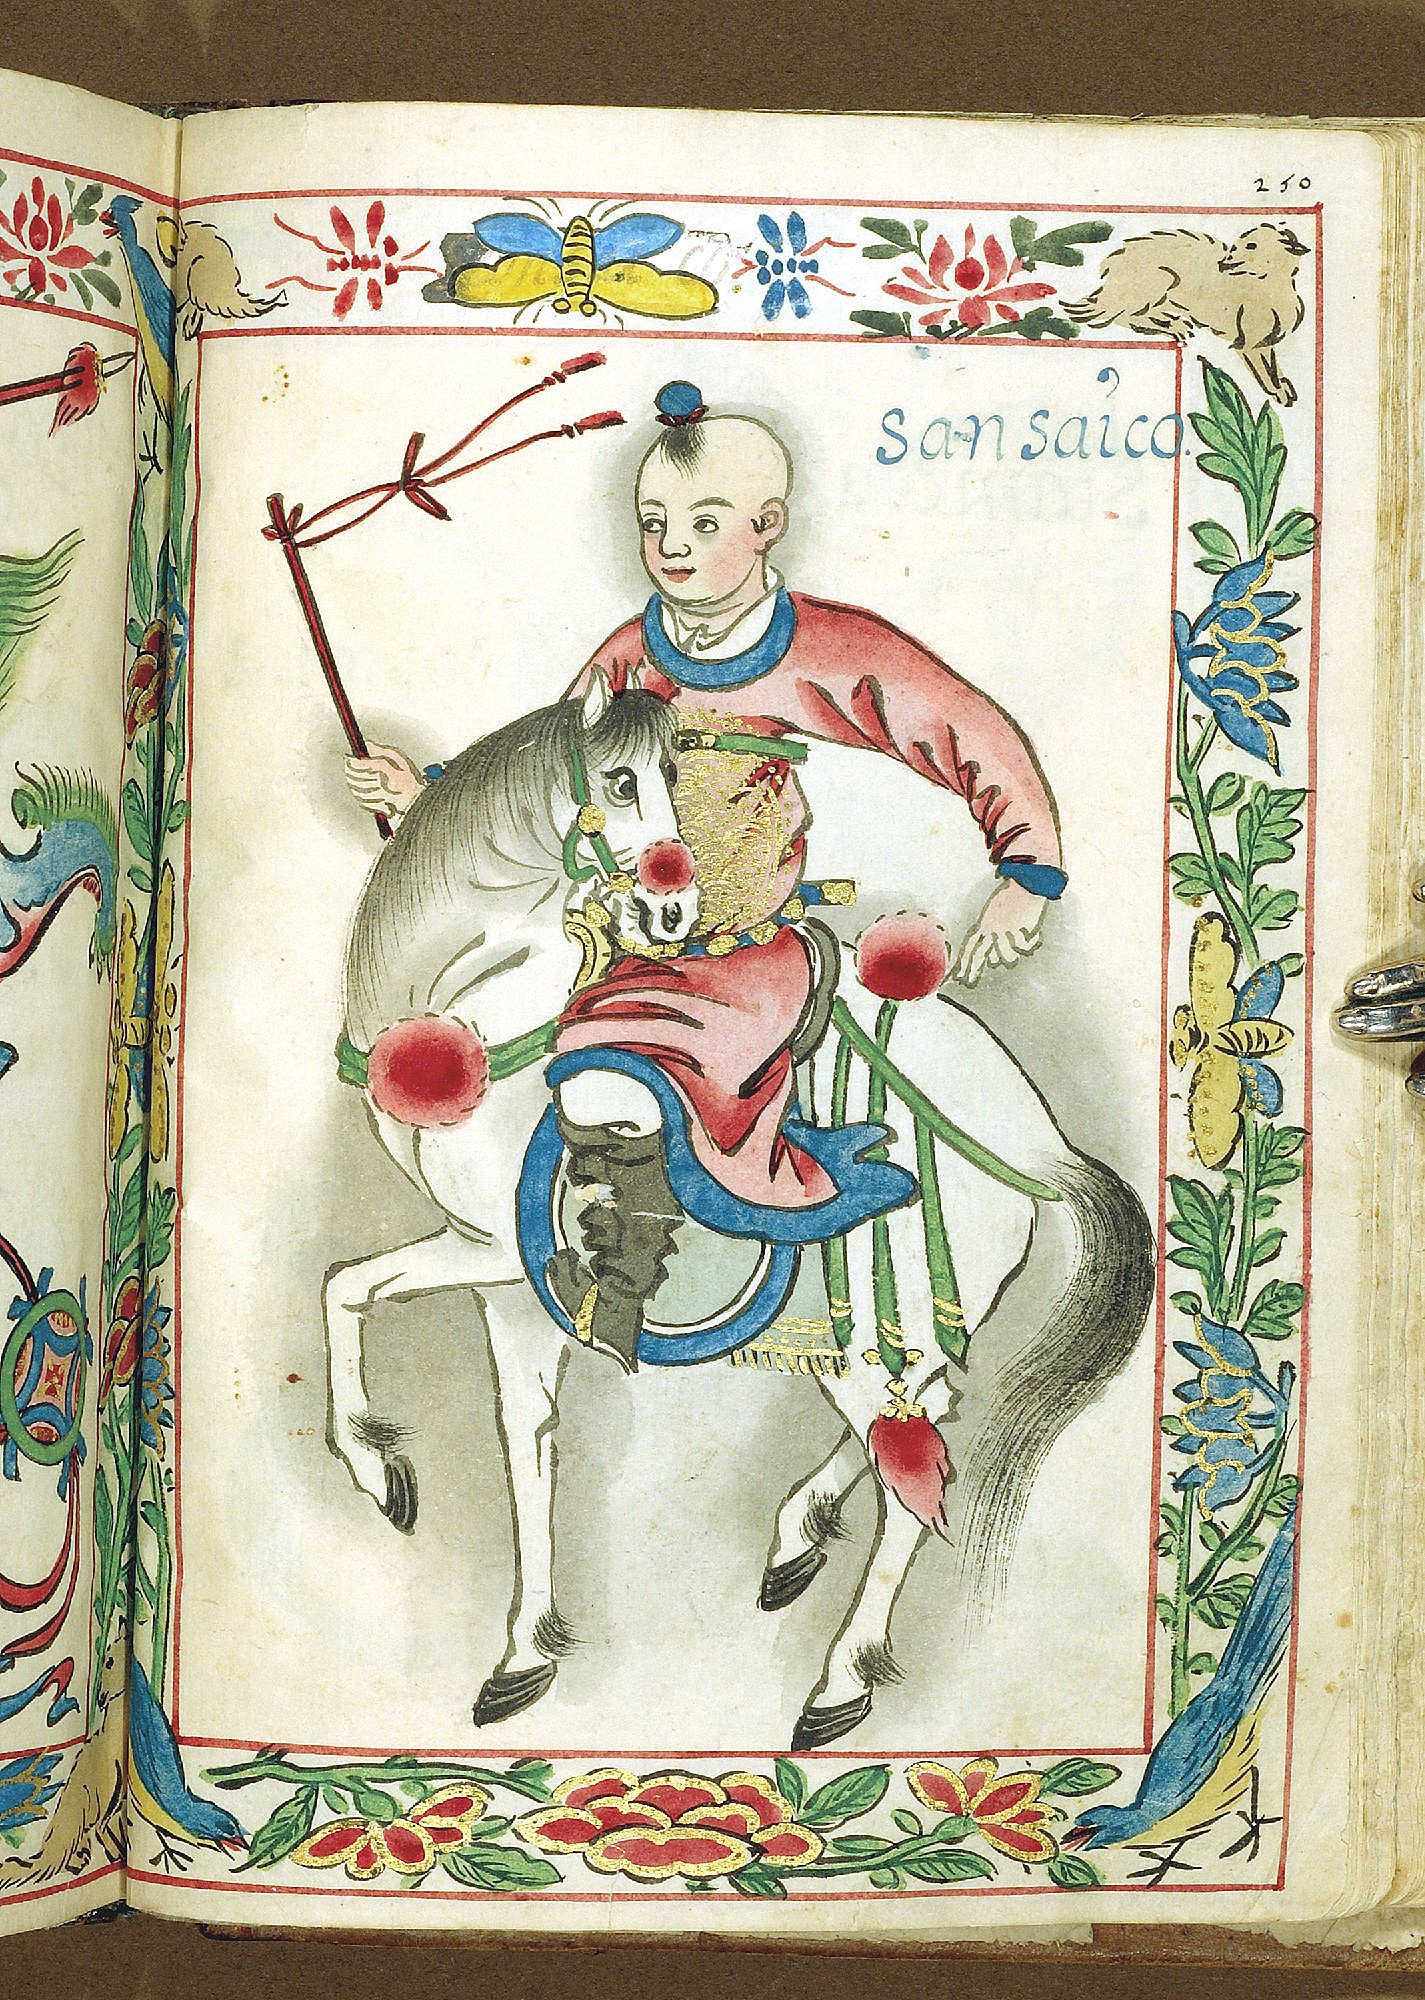 250
sansaico.